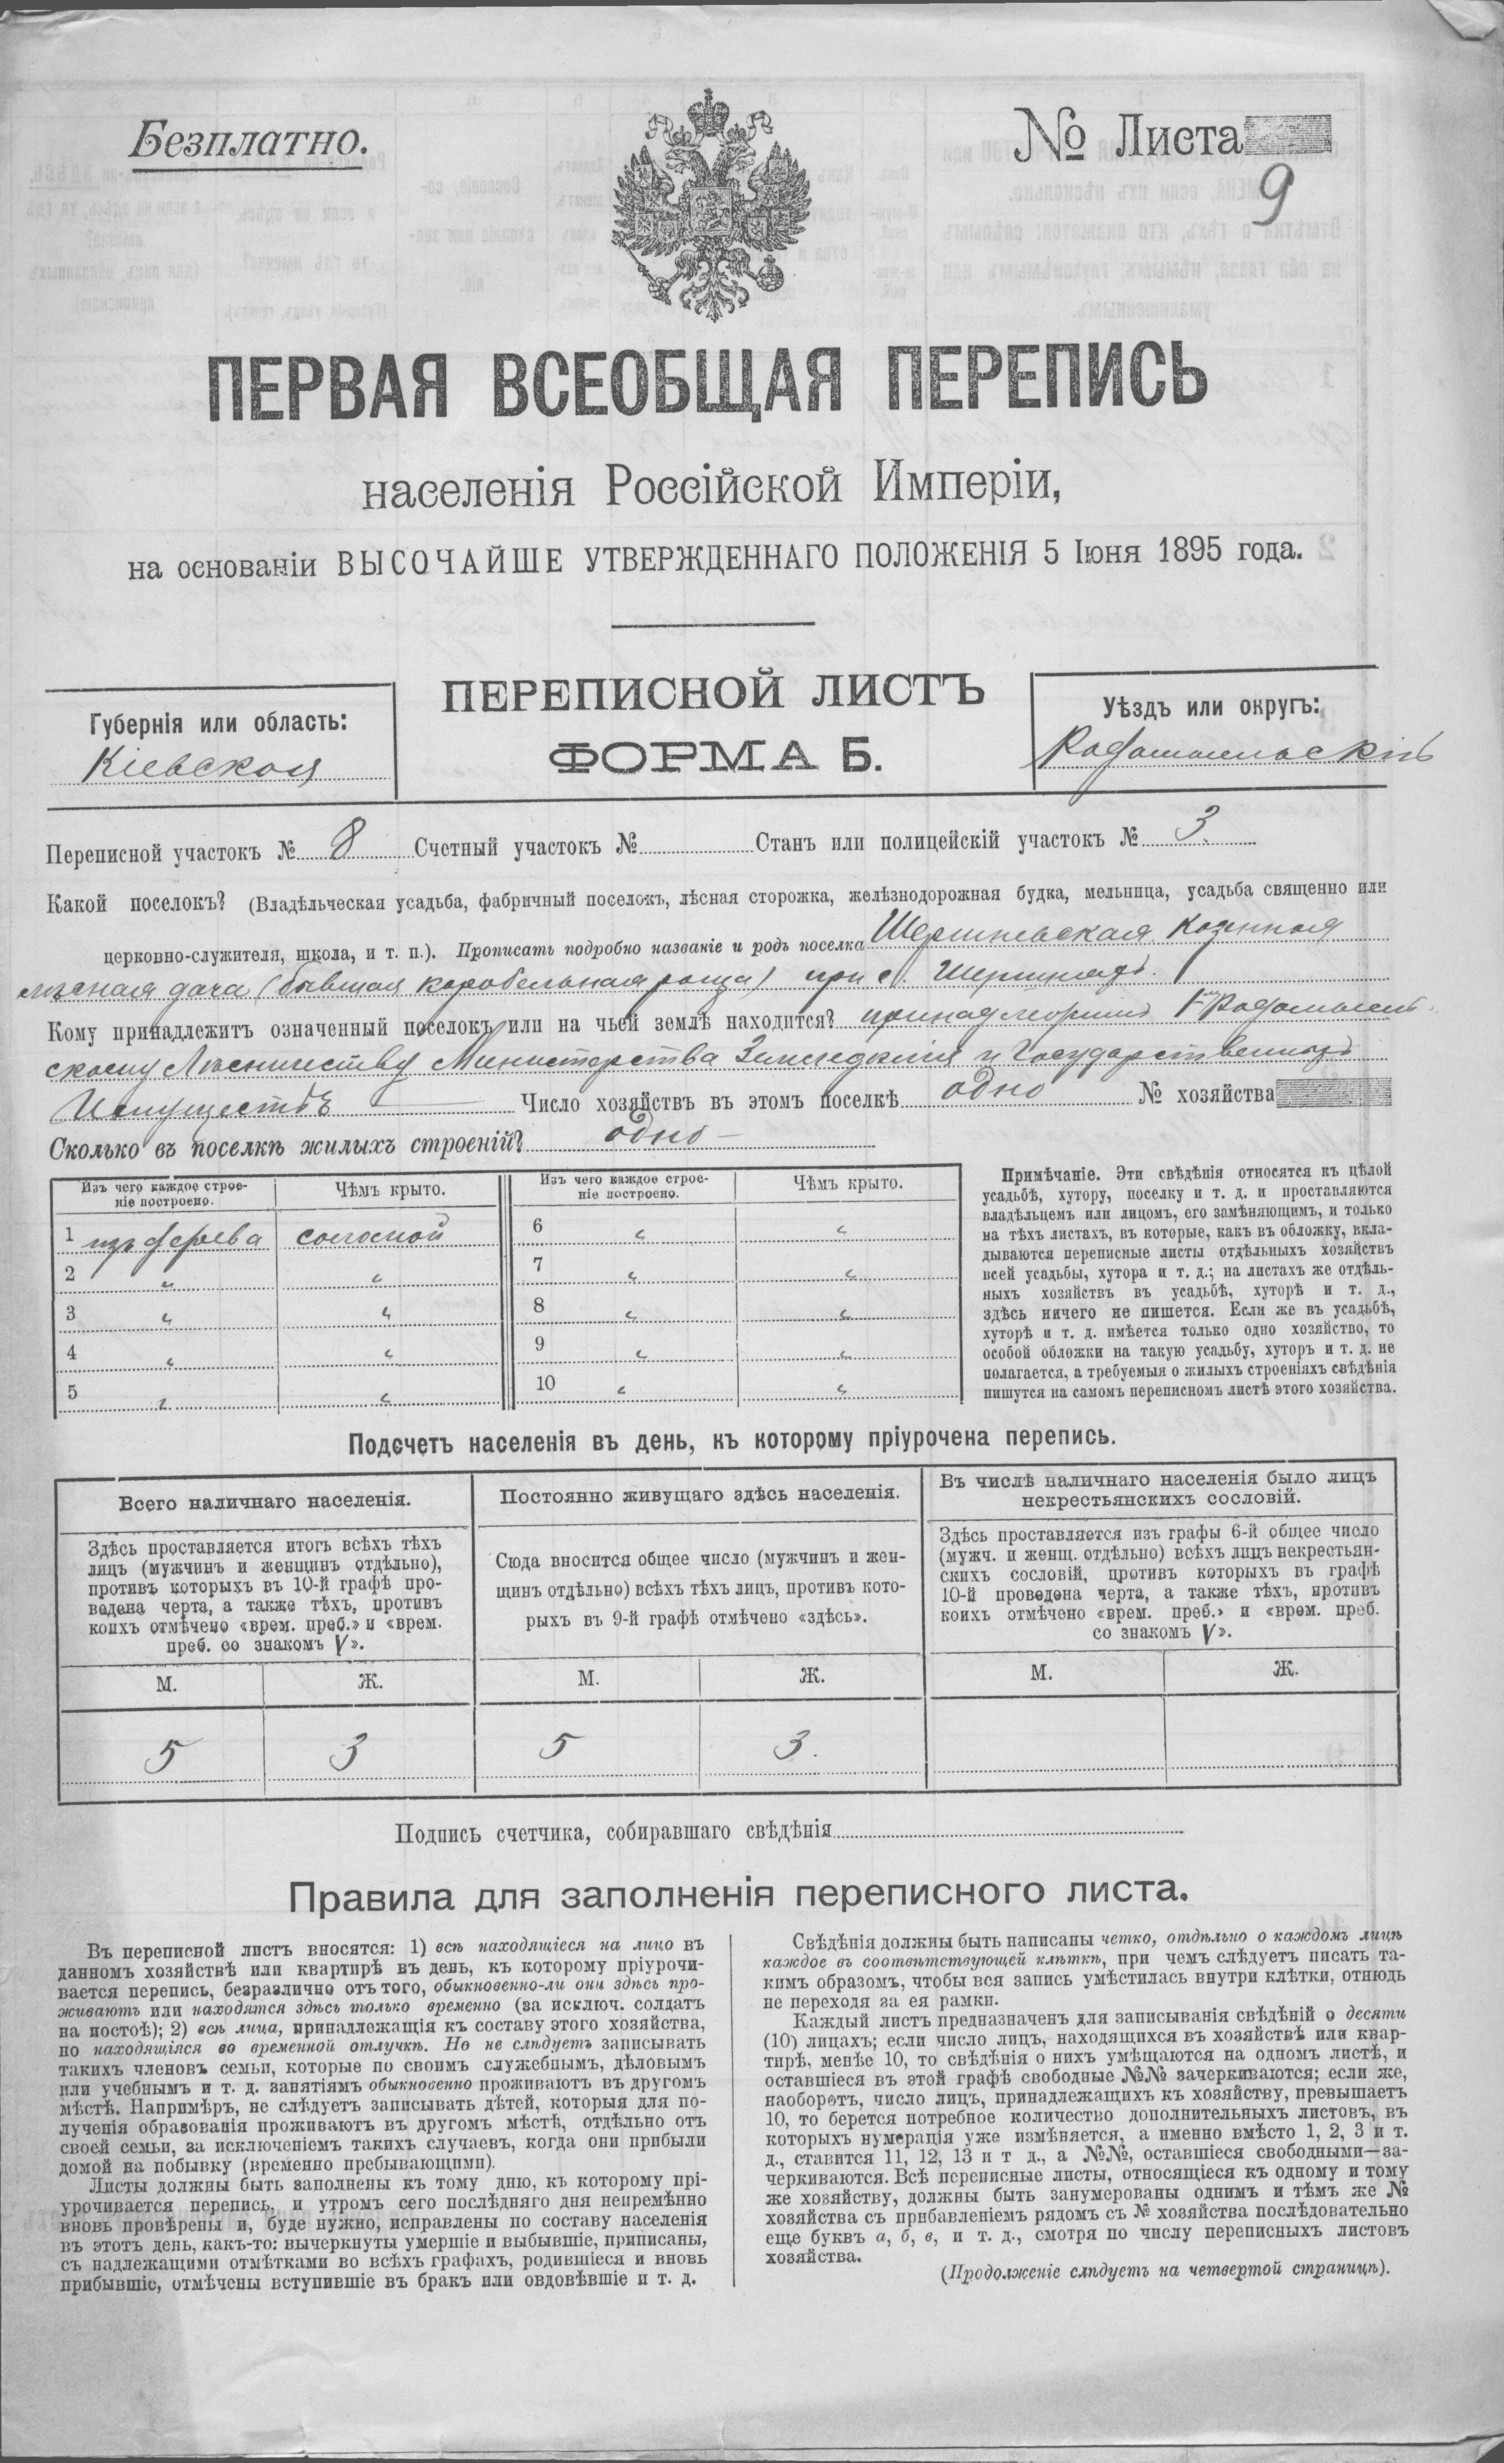 Безплатно.
№ Листа
9
ПЕРВАЯ ВСЕОБЩАЯ ПЕРЕПИСЬ
населенія Россійской Имперіи,
на основаніи ВЫСОЧАЙШЕ УТВЕРЖДЕННАГО ПОЛОЖЕНІЯ 5 Іюня 1895 года.
ПЕРЕПИСНОЙ ЛИСТЪ
ФОРМА Б.
Губернія или область:
Кіевская
Уѣздъ или округъ:
Радомысльскій
Переписной участокъ № 8 Счетный участокъ № Станъ или полицейскій участокъ № 3.
Какой поселокъ? (Владѣльческая усадьба, фабричный поселокъ, лѣсная сторожка, желѣзнодорожная будка, мельница, усадьба священно или
церковно-служителя, школа, и т. п.). Прописать подробно названіе и родъ поселка Шершневская Казенная
лѣсная дача (бывшая корабельная роща) при с. Шершняхъ.
Кому принадлежитъ означенный поселокъ или на чьей землѣ находится? принадлежитъ Радомысль-
скому Лѣсничеству Министерства Земледѣлія и Государственныхъ
Имуществъ Число хозяйствъ въ этомъ поселкѣ одно № хозяйства
Сколько въ поселкѣ жилыхъ строеній? одно
Изъ чего каждое строе-
ніе построено.
Чѣмъ крыто.
Изъ чего каждое строе-
ніе построено.
Чѣмъ крыто.
1 изъ дерева соломой
2 " "
3 " "
4 " "
5 " "
6 " "
7 " "
8 " "
9 " "
10 " "
Примѣчаніе. Эти свѣдѣнія относятся къ цѣлой
усадьбѣ, хутору, поселку и т. д. и проставляются
владѣльцемъ или лицомъ, его замѣняющимъ, и только
на тѣхъ листахъ, въ которые, какъ въ обложку, вкла-
дываются переписные листы отдѣльныхъ хозяйствъ
всей усадьбы, хутора и т. д.; на листахъ же отдѣль-
ныхъ хозяйствъ въ усадьбѣ, хуторѣ и т. д.,
здѣсь ничего не пишется. Если же въ усадьбѣ,
хуторѣ и т. д. имѣется только одно хозяйство, то
особой обложки на такую усадьбу, хуторъ и т. д. не
полагается, а требуемыя о жилыхъ строеніяхъ свѣдѣнія
пишутся на самомъ переписномъ листѣ этого хозяйства.
Подсчетъ населенія въ день, къ которому пріурочена перепись.
Всего наличнаго населенія.
Здѣсь проставляется итогъ всѣхъ тѣхъ
лицъ (мужчинъ и женщинъ отдѣльно),
противъ которыхъ въ 10-й графѣ про-
ведена черта, а также тѣхъ, противъ
коихъ отмѣчено «врем. преб.» и «врем.
преб. со знакомъ V».
М. Ж.
5 3
Постоянно живущаго здѣсь населенія.
Сюда вносится общее число (мужчинъ и жен-
щинъ отдѣльно) всѣхъ тѣхъ лицъ, противъ кото-
рыхъ въ 9-й графѣ отмѣчено «здѣсь».
М. Ж.
5 3.
Въ числѣ наличнаго населенія было лицъ
некрестьянскихъ сословій.
Здѣсь проставляется изъ графы 6-й общее число
(мужч. и женщ. отдѣльно) всѣхъ лицъ некрестьян-
скихъ сословій, противъ которыхъ въ графѣ
10-й проведена черта, а также тѣхъ, противъ
коихъ отмѣчено «врем. преб.» и «врем. преб.
со знакомъ V».
М. Ж.
Подпись счетчика, собиравшаго свѣдѣнія
Правила для заполненія переписного листа.
Въ переписной листъ вносятся: 1) всѣ находящіеся на лицо въ
данномъ хозяйствѣ или квартирѣ въ день, къ которому пріурочи-
вается перепись, безразлично отъ того, обыкновенно-ли они здѣсь про-
живаютъ или находятся здѣсь только временно (за исключ. солдатъ
на постоѣ); 2) всѣ лица, принадлежащія къ составу этого хозяйства,
но находящіяся во временной отлучкѣ. Но не слѣдуетъ записывать
такихъ членовъ семьи, которые по своимъ служебнымъ, дѣловымъ
или учебнымъ и т. д. занятіямъ обыкновенно проживаютъ въ другомъ
мѣстѣ. Напримѣръ, не слѣдуетъ записывать дѣтей, которыя для по-
лученія образованія проживаютъ въ другомъ мѣстѣ, отдѣльно отъ
своей семьи, за исключеніемъ такихъ случаевъ, когда они прибыли
домой на побывку (временно пребывающими).
Листы должны быть заполнены къ тому дню, къ которому прі-
урочивается перепись, и утромъ сего послѣдняго дня непремѣнно
вновь провѣрены и, буде нужно, исправлены по составу населенія
въ этотъ день, какъ-то: вычеркнуты умершіе и выбывшіе, приписаны,
съ надлежащими отмѣтками во всѣхъ графахъ, родившіеся и вновь
прибывшіе, отмѣчены вступившіе въ бракъ или овдовѣвшіе и т. д.
Свѣдѣнія должны быть написаны четко, отдѣльно о каждомъ лицѣ
каждое въ соотвѣтствующей клѣткѣ, при чемъ слѣдуетъ писать та-
кимъ образомъ, чтобы вся запись умѣстилась внутри клѣтки, отнюдь
не переходя за ея рамки.
Каждый листъ предназначенъ для записыванія свѣдѣній о десяти
(10) лицахъ; если число лицъ, находящихся въ хозяйствѣ или квар-
тирѣ, менѣе 10, то свѣдѣнія о нихъ умѣщаются на одномъ листѣ, и
оставшіеся въ этой графѣ свободные №№ зачеркиваются; если же,
наоборотъ, число лицъ, принадлежащихъ къ хозяйству, превышаетъ
10, то берется потребное количество дополнительныхъ листовъ, въ
которыхъ нумерація уже измѣняется, а именно вмѣсто 1, 2, 3 и т.
д., ставится 11, 12, 13 и т д., а №№, оставшіеся свободными—за-
черкиваются. Всѣ переписные листы, относящіеся къ одному и тому
же хозяйству, должны быть занумерованы однимъ и тѣмъ же №
хозяйства съ прибавленіемъ рядомъ съ № хозяйства послѣдовательно
еще буквъ а, б, в, и т. д., смотря по числу переписныхъ листовъ
хозяйства.
(Продолженіе слѣдуетъ на четвертой страницѣ).